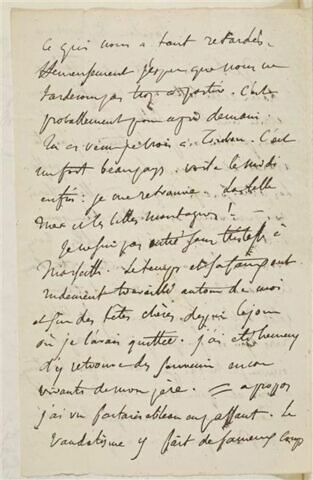 ce qui nous a tant retardés.
Heureusement j'espère que nous ne
tarderons pas trop à partir. C'est
probablement pour après demain.
Tu es venu à Toulon. C'est
un fort beau pays. voilà le midi
enfin. je me retrouve. La belle
mer et les belles montagnes! —
Je ne suis pas resté sans tristesse à
Marseille. Le temps et la faim ont
rudement travaillé autour de moi
et sur des têtes chères depuis le jour
où je l'avais quittée. j'ai été heureux
d'y retrouver des souvenirs encore
vivants de mon père. = a propos
j'ai vu ton tableau en passant. le
vandalisme y fait de fameux coups